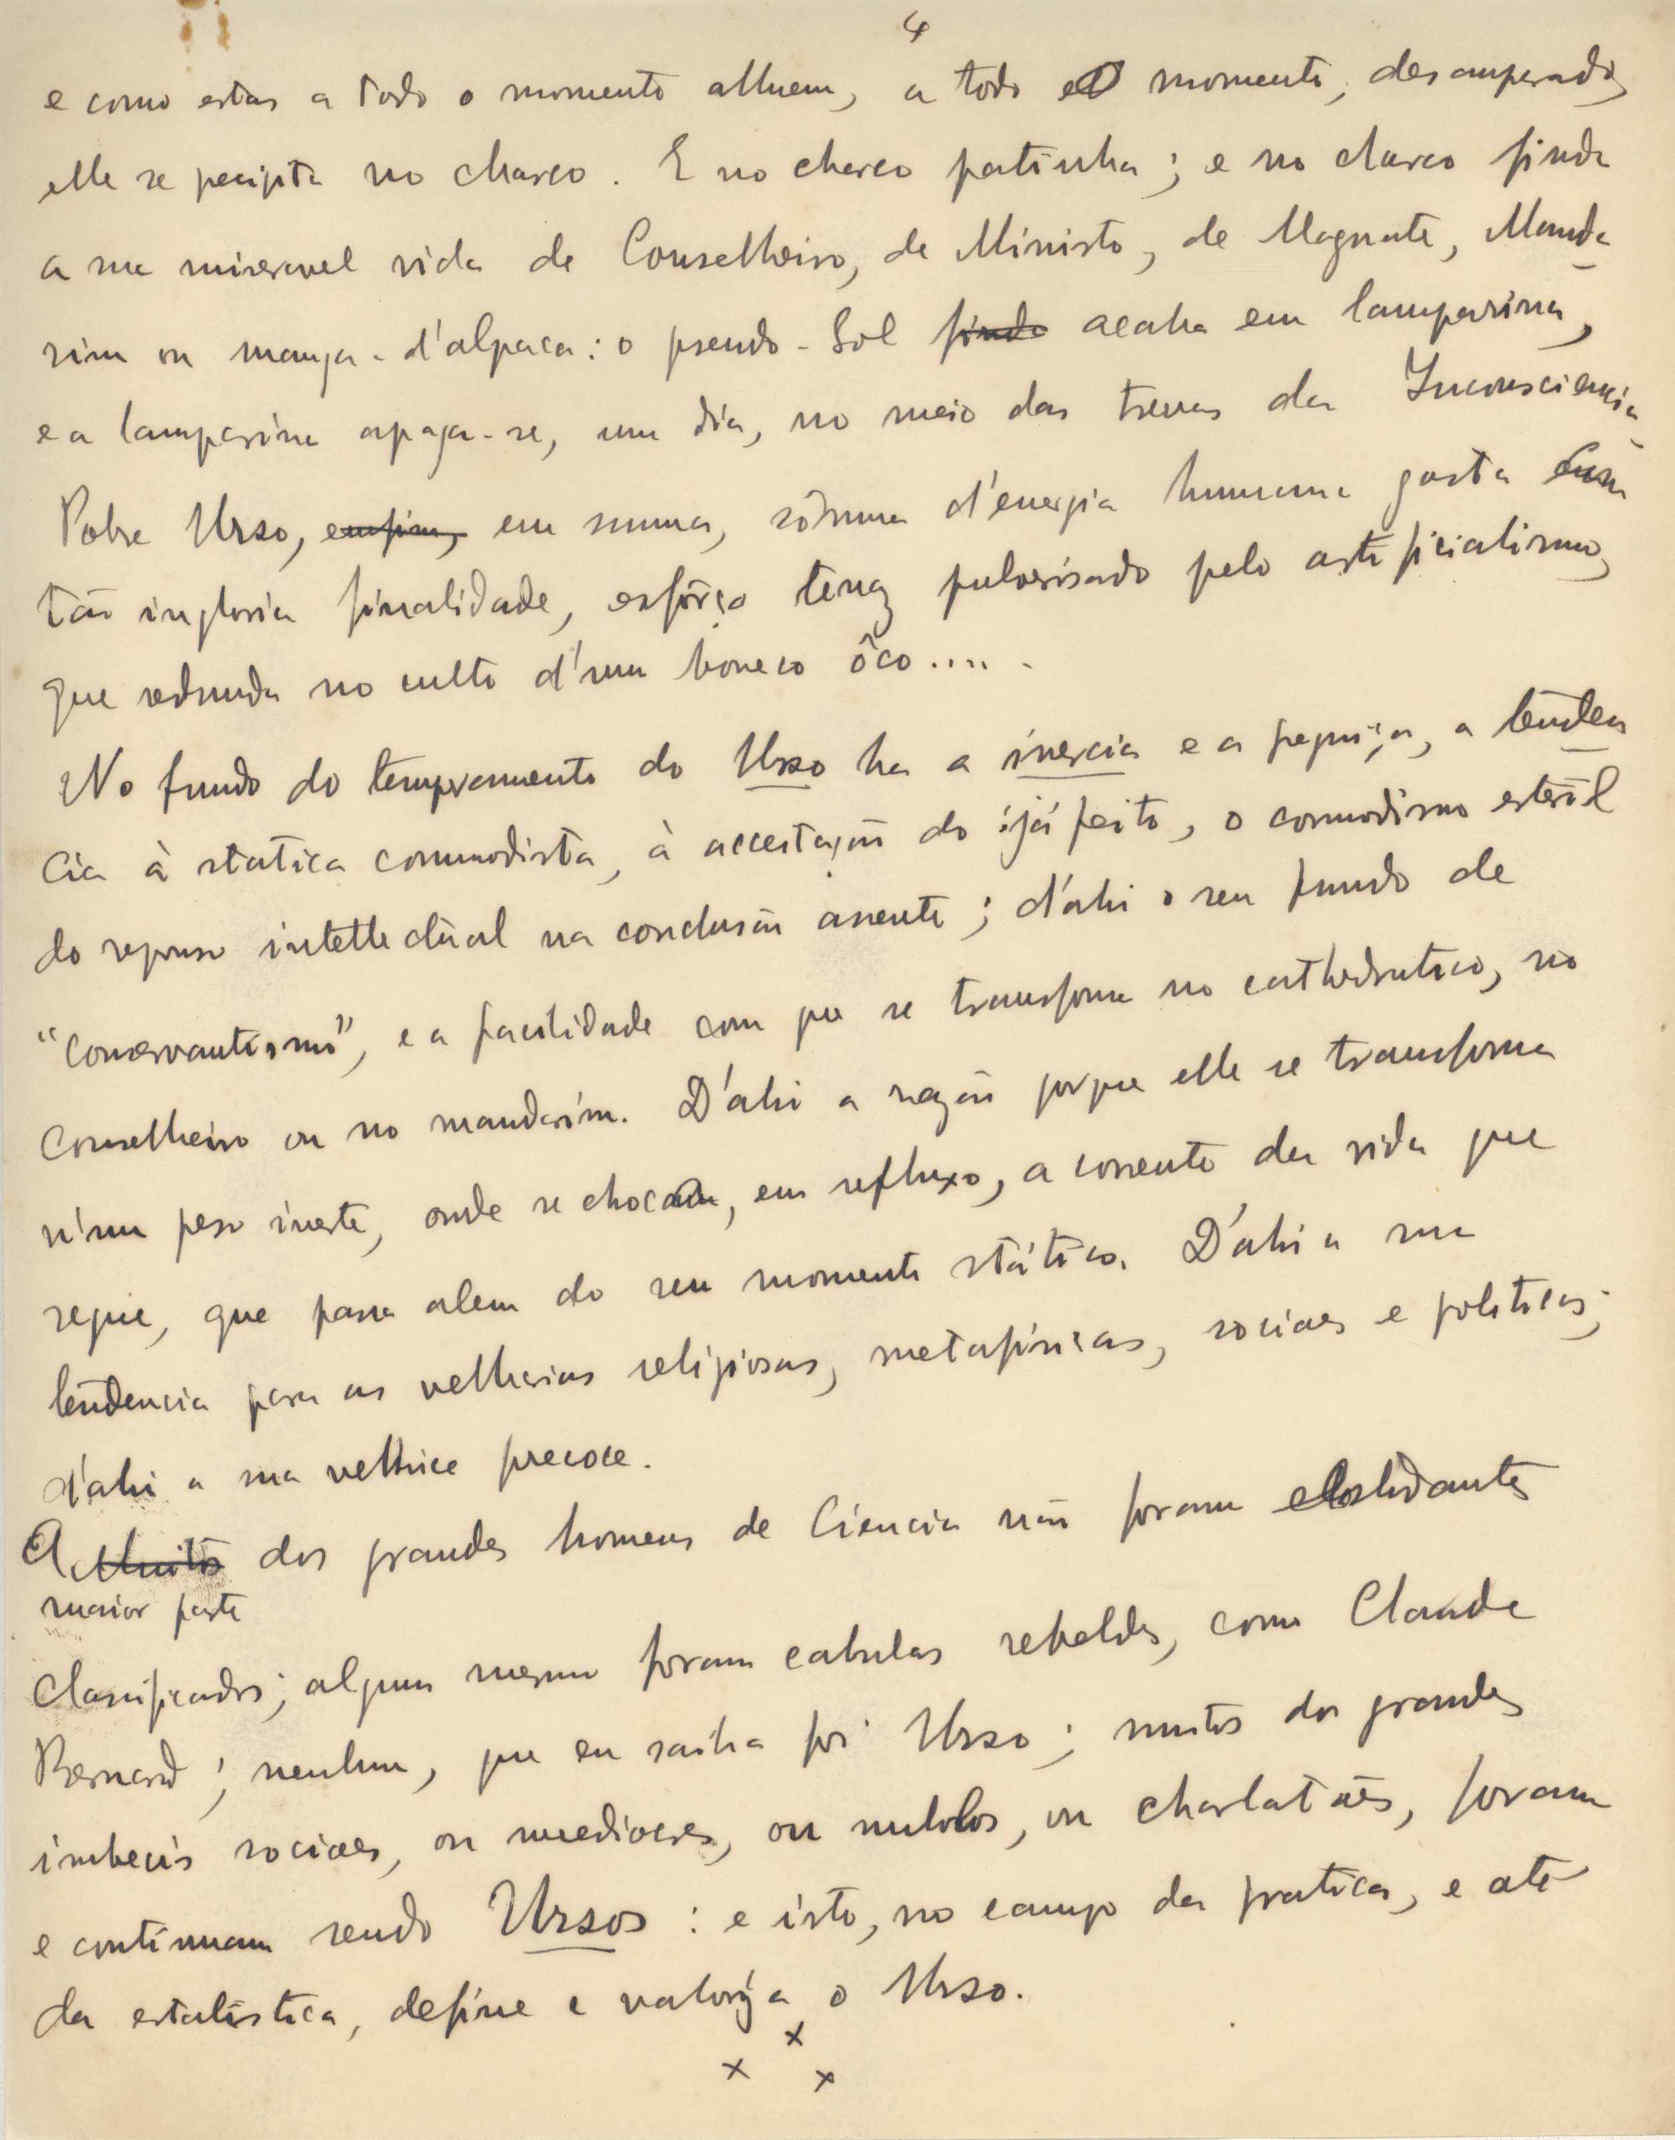 4
e como estas a todo o momento alluem, a todo o momento, desamparado,
elle se precipita no charco. E no charco patinha; e no charco finda
a sua miseravel vida de Conselheiro, de Ministro, de Magnate, Manda
rim ou manga-d'alpaca: o pseudo-Sol finda acaba em lamparina,
e a lamparina apaga-se, um dia, no meio das trevas da Inconsciencia.
Pobre Urso, emfim, em summa, sômma d'energia humana gasta em
tão ingloria finalidade, esfôrço tenaz pulverisado pelo artificialismo,
que redunda no culto d'um boneco ôco.....
No fundo do temperamento do Urso ha a inercia e a preguiça, a tenden
cia à statica commodista, à acceitação do já feito, o commodismo esteril
do repouso intellectual na conclusão assente; d'ahi o seu fundo de
"conservantismo", e a facilidade com que se transforma no cathedratico, no
Conselheiro ou no mandarim. D'ahi a razão porque elle se transforma
n'um peso inerte, onde se choca, em refluxo, a corrente da vida que
segue, que passa alem do seu momento stático. D'ahi a sua
tendencia para as velharias religiosas, metafisicas, sociaes e politicas;
d'ahi a sua velhice precoce.
A Muitos dos grandes homens de Ciencia não foram estudantes
maior parte
classificados; alguns mesmo foram cabulas rebeldes, como Claude
Bernard; nenhum, que eu saiba foi Urso; muitos dos grandes
imbecis sociaes, ou mediocres, ou nulos, ou charlatães, foram
e continuam sendo Ursos: e isto, no campo da pratica, e até
da estatistica, define e valoriza o Urso.
x
x x